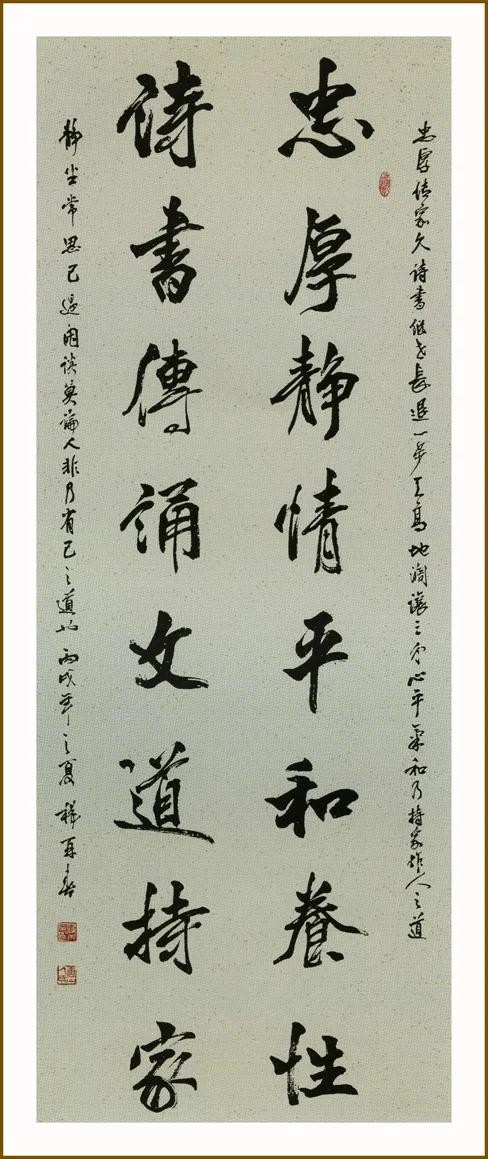 忠厚传家久诗書继世長退一步天高地濶讓三分心平氣和乃持家作人之道
忠厚静情平和養性
诗書傳誦文道持家
静坐常思己過闲谈莫論人非乃省己之道也丙戌年之夏